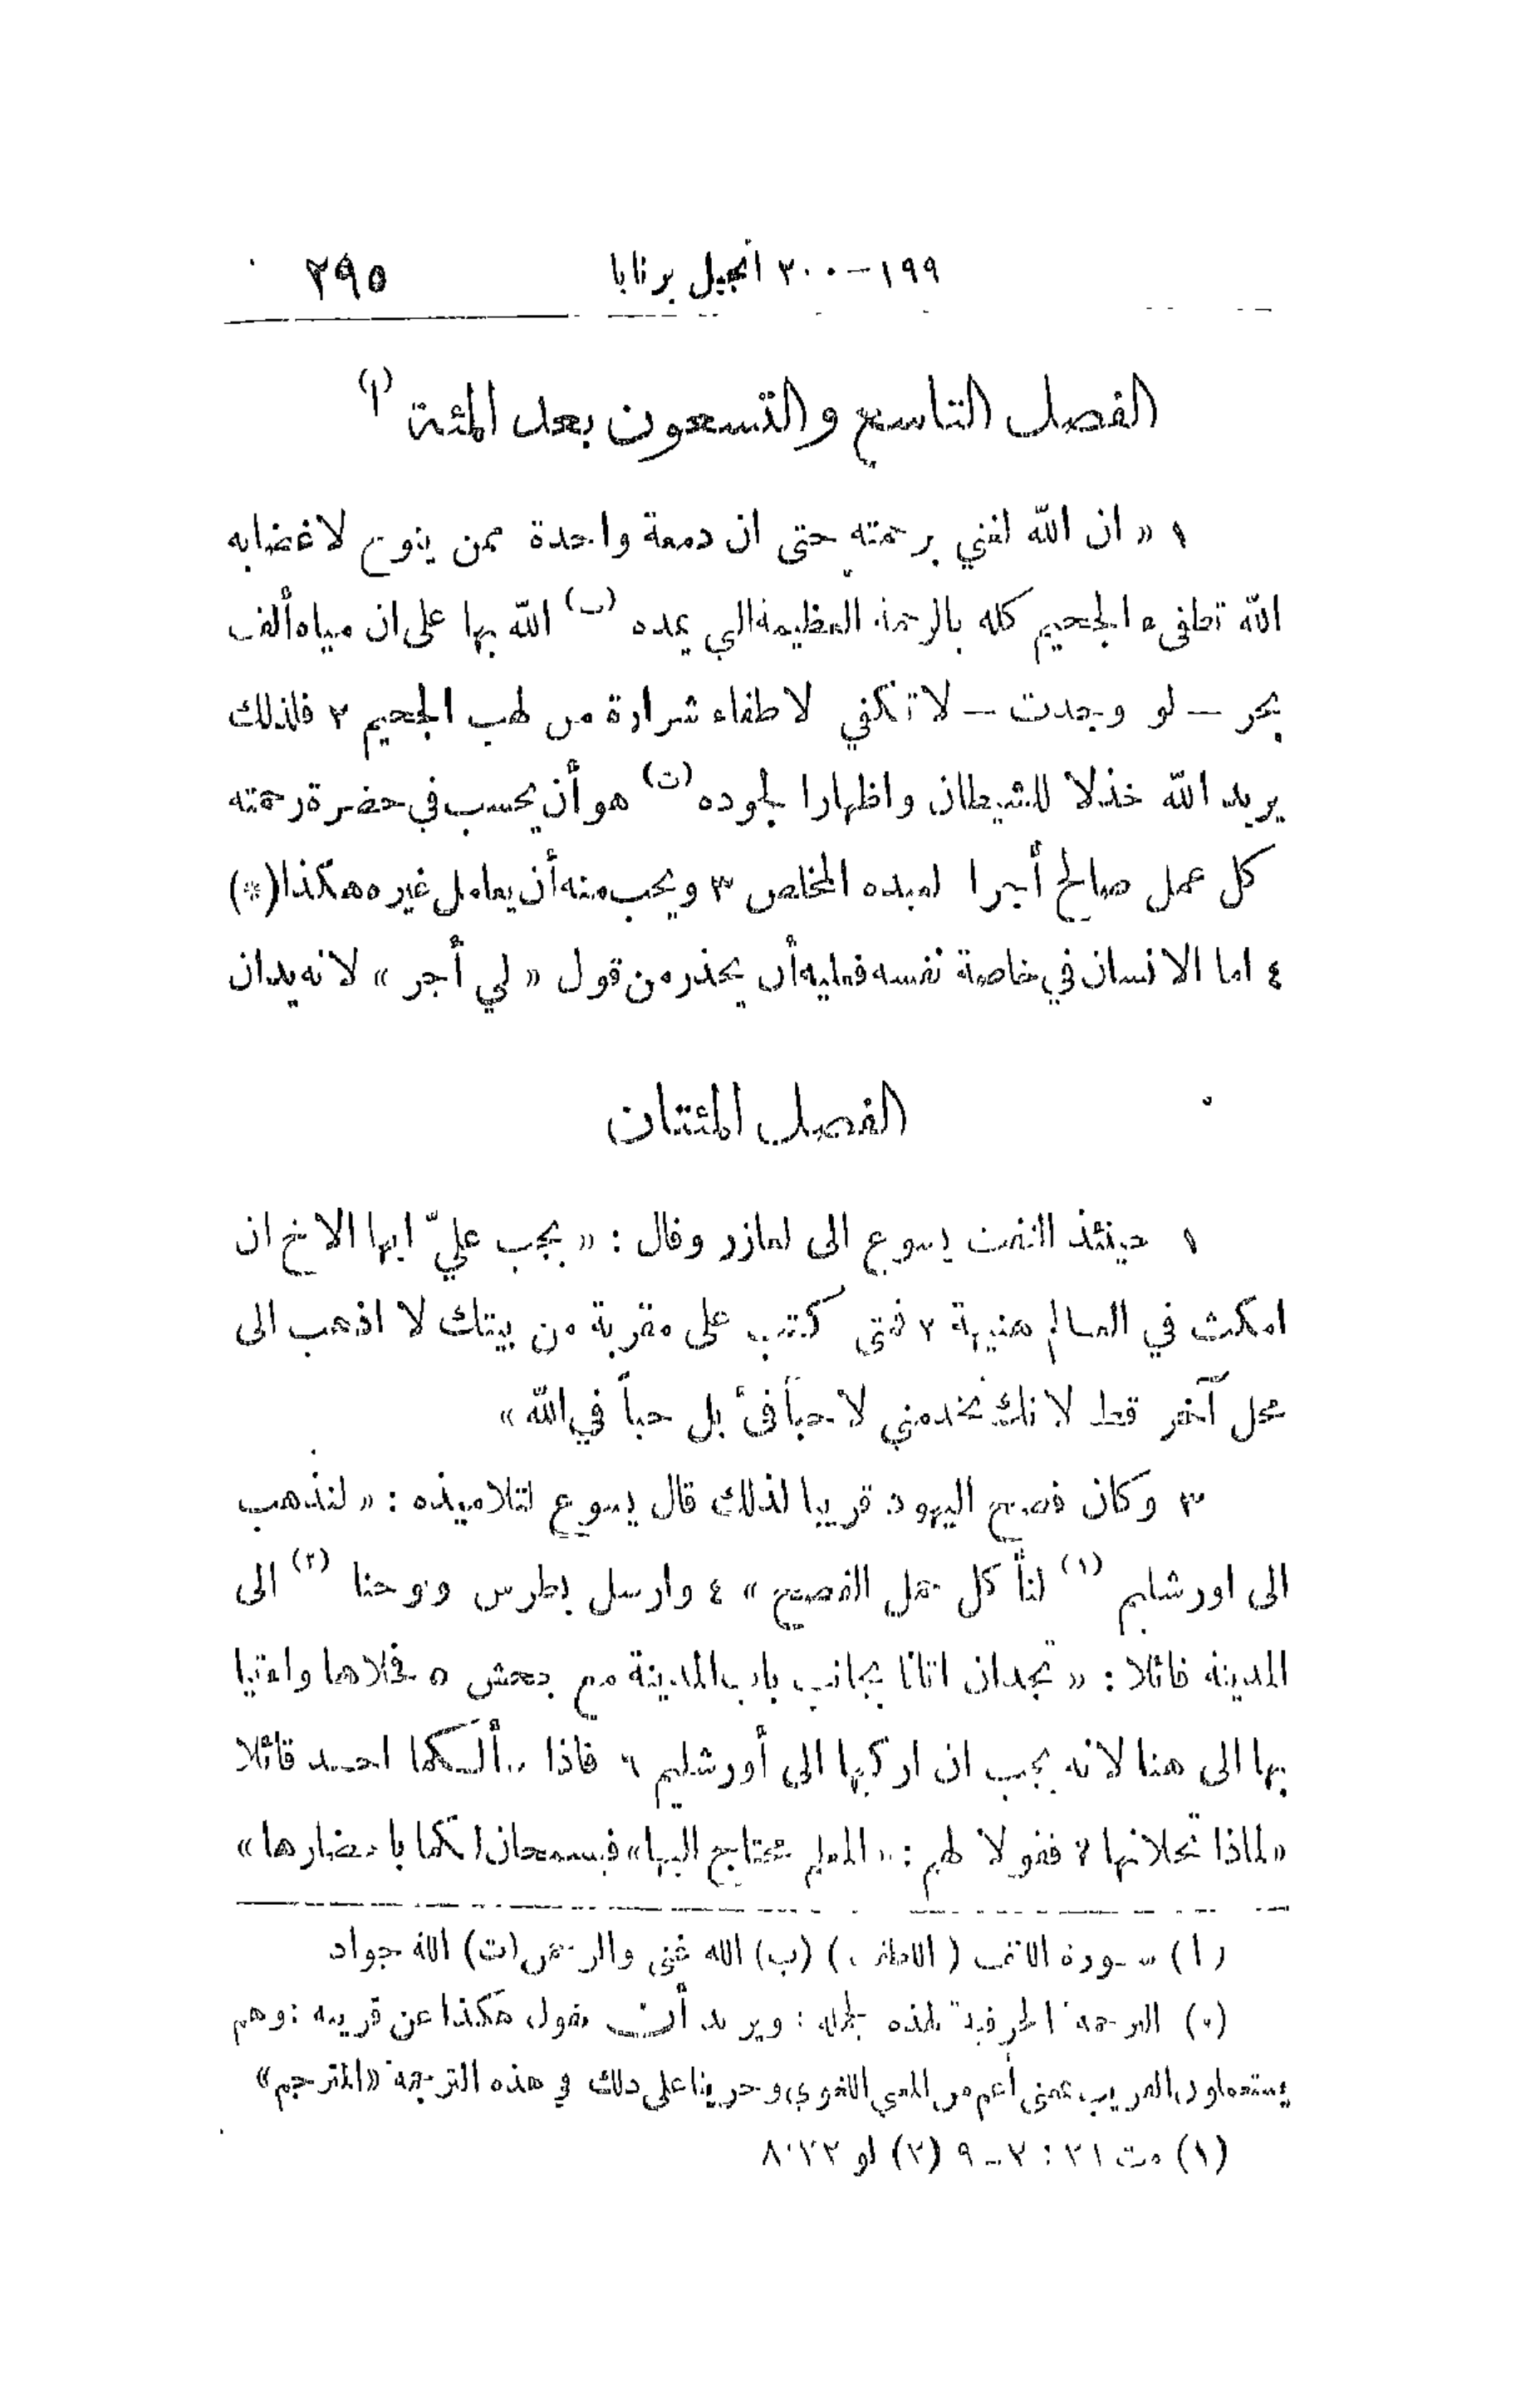 ١٩٩-٢٠٠ انجيل برنابا ٢٩٥
الفصل التاسع والتسعون بعد المئة (ا)
١ « ان الله لغني برحمته حتى ان دمعة واحدة ممن ينوح لاغضابه
الله تطفىء الجحيم كله بالرحمة العظيمة التي يمده (ب) الله بها على ان مياه ألف
بحر – لو وجدت – لا تكفي لاطفاء شرارة من لهب الجحيم ٢ فلذلك
يريد الله خذلا للشيطان واظهارا لجوده (ت) هو أن يحسب في حضرة رحمته
كل عمل صالح أجرا لعبده المخلص ٣ ويحب منه أن يعامل غيره هكذا (*)
٤ اما الانسان في خاصة نفسه فعليه أن يحذر من قول « لي أجر » لانه يدان
الفصل المئتان
١ حينئذ التفت يسوع الى لعازر وقال : « يجب عليّ ايها الاخ ان
امكث في العالم هنيهة ٢ فمتى كنت على مقربة من بيتك لا اذهب الى
محل آخر قط لانك تخدمني لا حباً فيّ بل حباً في الله »
٣ وكان فصح اليهود قريبا لذلك قال يسوع لتلاميذه : « لنذهب
الى اورشليم (١) لنأكل حمل الفصح » ٤ وارسل بطرس ويوحنا (٢) الى
المدينة قائلا : « تجدان اتانا بجانب باب المدينة مع جحش ٥ فحلاها وأتيا
بها الى هنا لانه يجب ان اركبها الى أورشليم ٦ فاذا سألكما احد قائلا
« لماذا تحلانها ؟ فقولا لهم : « المعلم محتاج اليها » فيسمحان لكما باحضارها »
(ا) سورة الاتحب (ب) الله غنى والرحمن (ت) الله جواد
(*) الترجمة الحرفية لهذه الجملة : ويريد أن يقول هكذا عن قريبه : وهم
يستعملون القريب بمعنى أعم من المعنى اللغوي وجرينا على ذلك في هذه الترجمة « المترجم »
(١) مت ٢١ : ٢-٩ (٢) لو ٢٢:٨